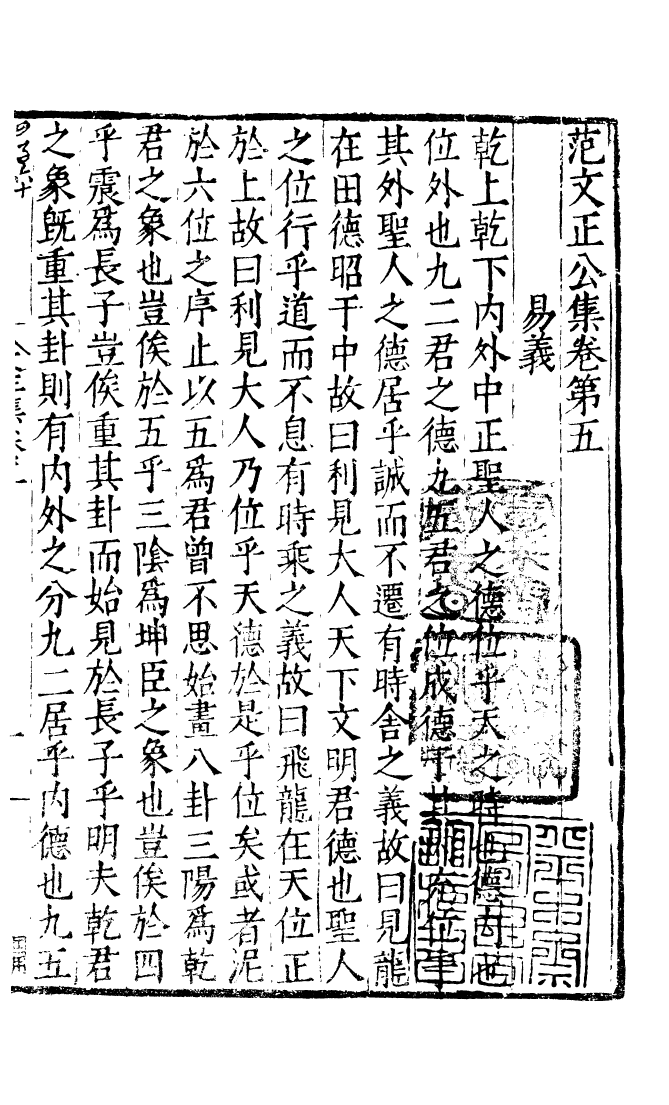 范文正公集卷第五
易義
乾上乾下內外中正聖人之德位乎天之時也德內也
位外也九二君之德九五君之位成德于其內充位乎
其外聖人之德居乎誠而不遷有時舍之義故曰見龍
在田德昭于中故曰利見大人天下文明君德也聖人
之位行乎道而不息有時乘之義故曰飛龍在天位正
於上故曰利見大人乃位乎天德於是乎位矣或者泥
於六位之序止以五爲君曾不思始畫八卦三陽爲乾
君之象也豈俟於五乎三陰爲坤臣之象也豈俟於四
乎震爲長子豈俟重其卦而始見於長子乎明夫乾君
之象旣重其卦則有內外之分九二居乎內德也九五